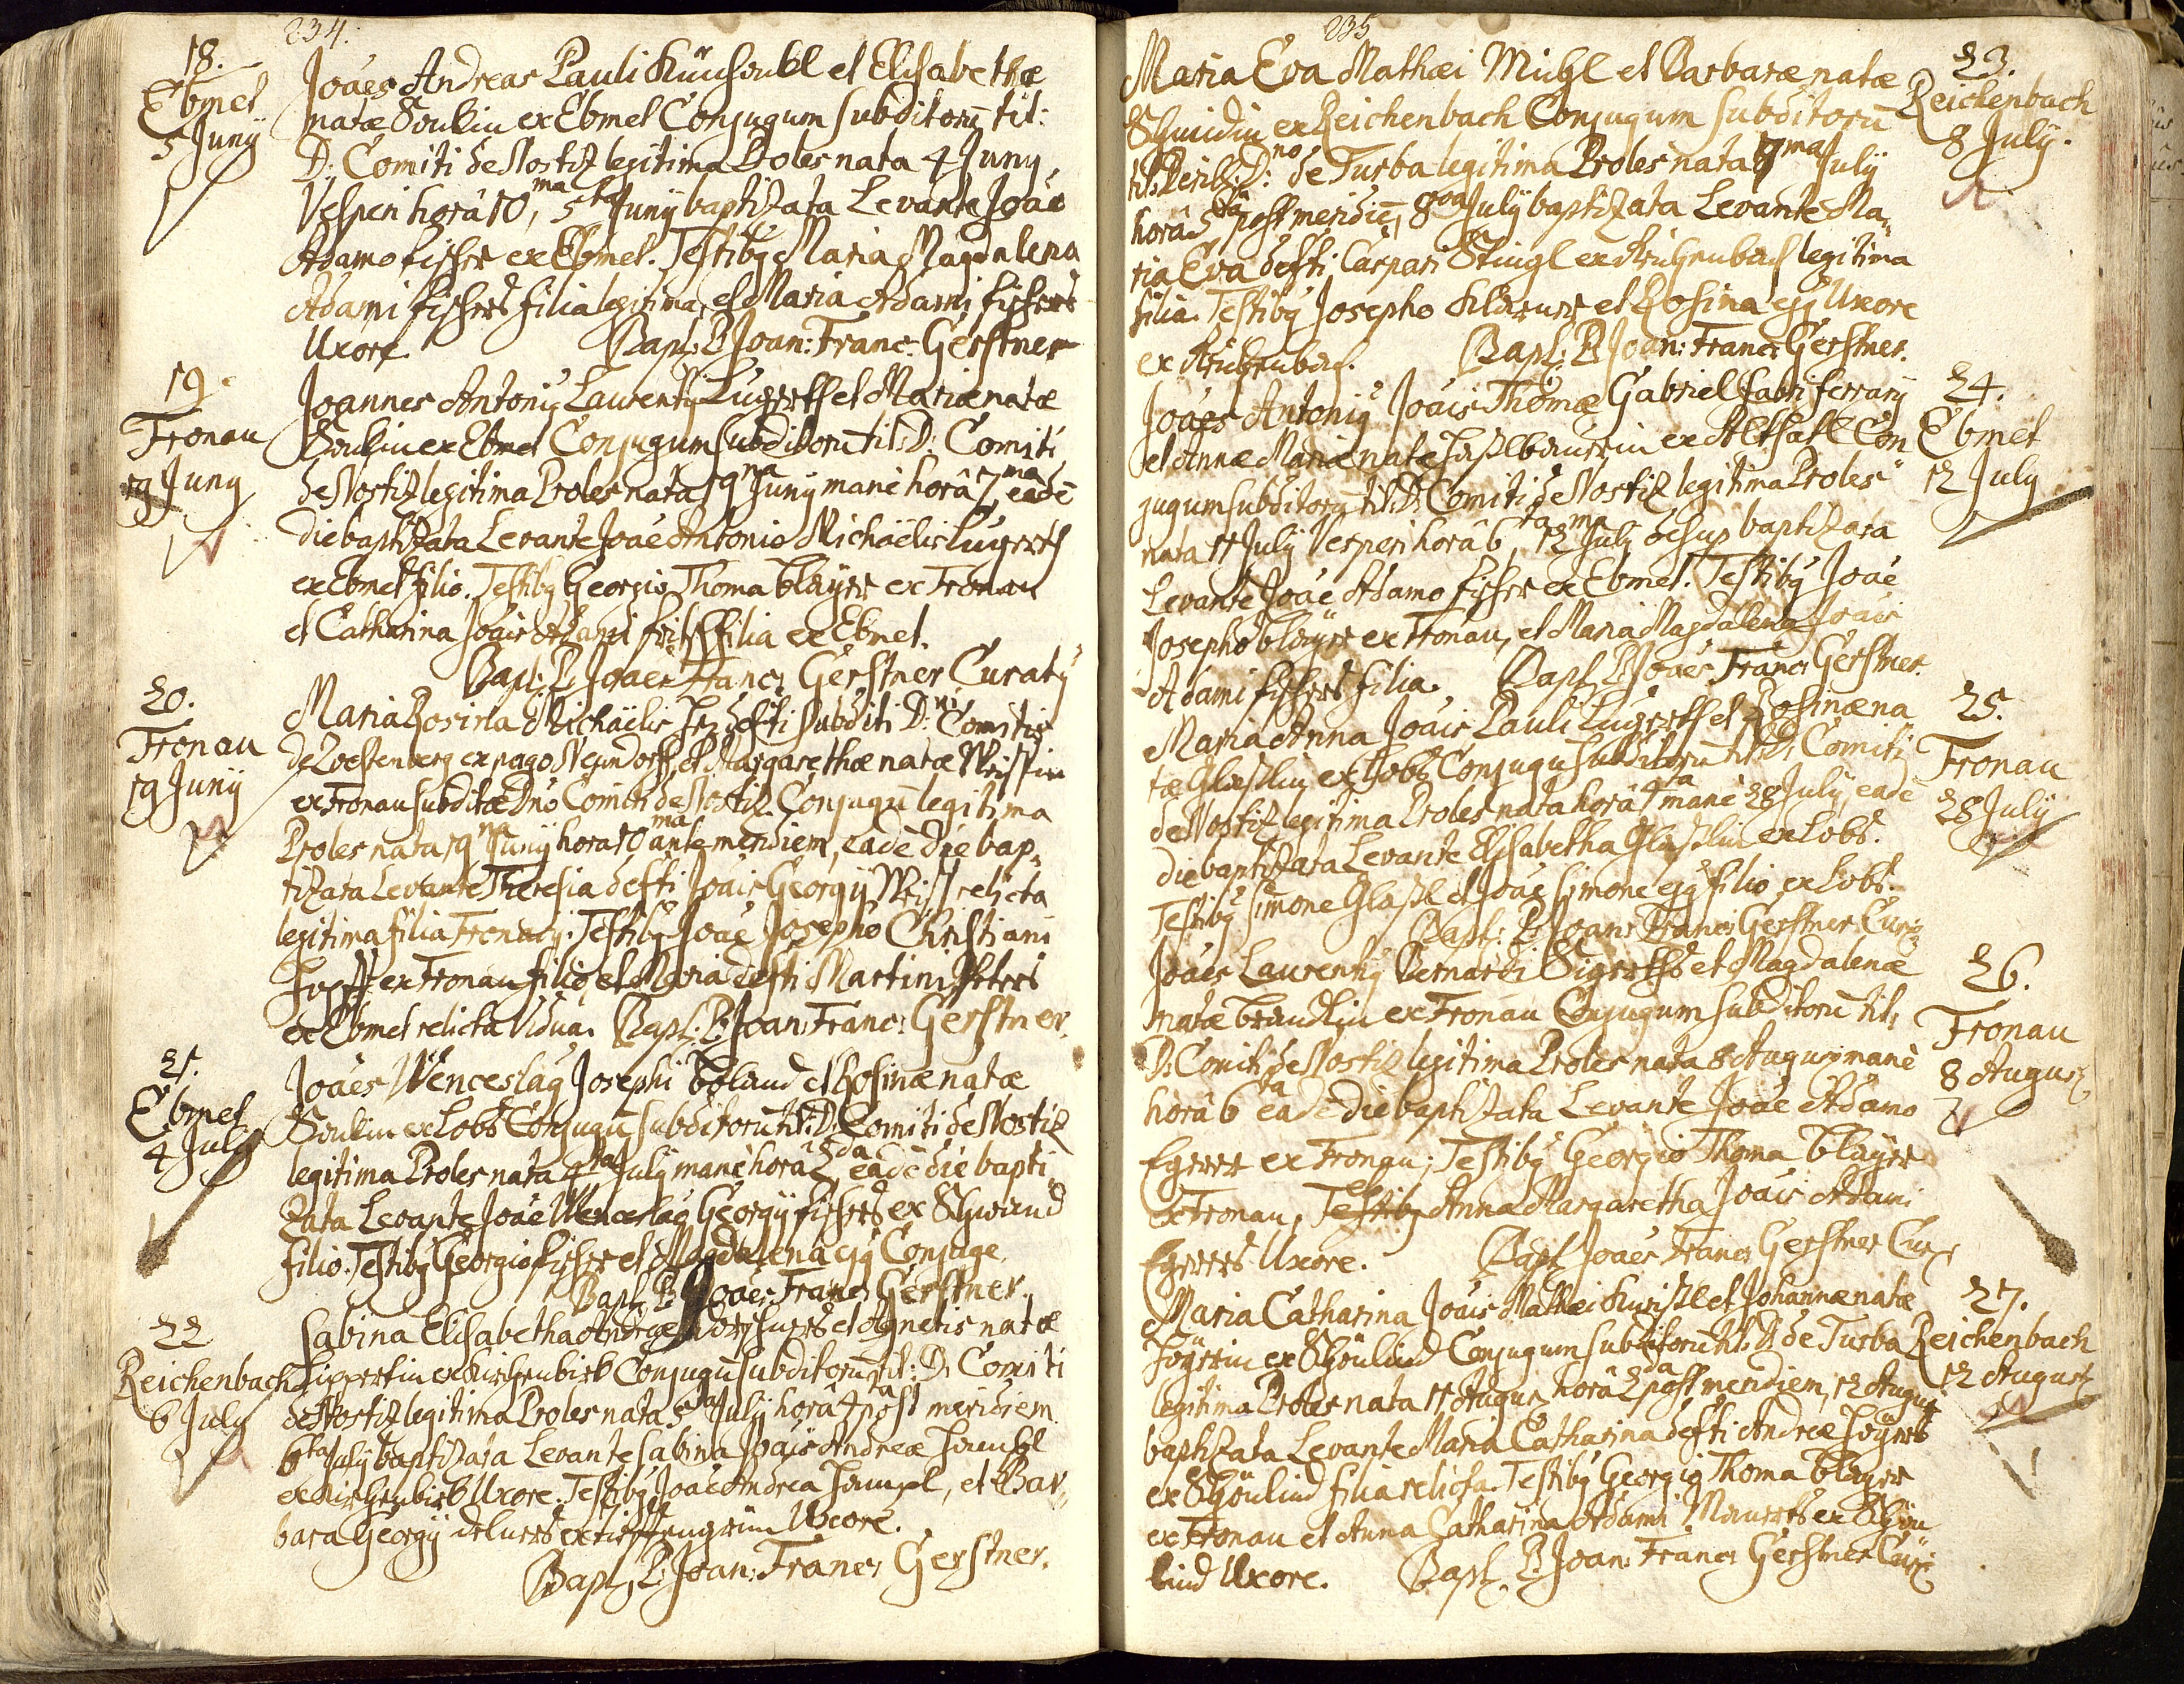 234.
18.
Ebmet
5 Junÿ
Joães Andreas Pauli et Elisabethæ
natæ ex Ebmet Conjugum subditorũ tit:
D: Comiti de Nostiz legitima Proles nata 4 Junÿ,
Vesperi horâ 10ma, 5ta Junÿ baptizata Levante Joãe
Adamo fischer ex Ebmet. Testibg Maria Magdalena
Adami fischers filia legitima, et Maria Adami fischers
Uxore. Bapt: P. Joan: Franc: Gerstner
19.
Fronau
19 Junÿ
Joannes Antonig Laurentÿ Lugerth et Mariæ natæ
ex Ebmet Conjugum subditorũ tit: D: Comiti
de Nostiz legitima Proles nata 19na Junÿ mane horâ 7ma, eadẽ
die baptizata Levante Joãe Antonio Michaëlis Lugerts
ex Ebmet filio. Testibg Georgio Thoma Blaÿer ex Fronau
et Catharina Joãis Adami fritsch filia ex Ebmet.
Bapt: P. Joaes Franc: Gerstner Curatg
20.
Fronau
19 Junÿ
Maria Rosina Michaëlis defti subditi D:ni Comitis
de ex pago Neundorff, et Margarethæ natæ
ex Fronau subditæ Dno Comiti de Nostiz Conjugũ legitima
Proles nata 19na Junÿ hora 10ma ante meridiem, eadẽ die bap„
tizata Levante Theresia defti Joãis Georgÿ relicta
legitima filia Testibg Joãe Josepho Christiani
ex Fronau filio, et Maria defti Martini Peters
ex Ebmet relicta Vidua. Bapt: P. Joan: Franc: Gerstner.
21.
Ebmet
4 Julÿ
Joães Wenceslag Josephi et Rosinæ natæ
ex Lobs Conjugũ subditorũ tit: D: Comiti de Nostiz
legitima Proles nata 4ta Julÿ manè horâ 2da, eâdẽ die bapti
zata Levante Joãe Wenceslao Georgÿ fischers ex
filio. Testibg Georgio fischer et Magdalena ejg Conjuge
Bapt: P. Joães Franc: Gerstner.
22
Reichenbach
6 Julÿ
Sabina Elisabetha Andreæ et Agnetis natæ
Lippertin ex Conjugũ subditorũ tit: D: Comiti
de Nostiz legitima Proles nata 5ta Julÿ horâ post meridiem
6ta Julÿ baptizata Levante Sabina Joãis Andreæ
ex Uxore. Testibg Joãe Andrea et Bar„
bara Georgÿ ex Uxore.
Bapt: P: Joan: Franc: Gerstner.
235
23.
Reichenbach
8 July.
Maria Eva Mathæi Michl et Barbaræ natæ
Schmidin ex Reichenbach Conjugum subditorũ
D:no de Turba legitima Proles nata 7ma Julÿ
horâ 5ta post meridiẽ, 8va Julÿ baptizata Levante Ma„
ria Eva defti Caspari Stingl ex Reichenbach legitima
filia. Testibg Josepho et Rosina ejg Uxore
ex Reichenbach. Bapt: P. Joan: Franc: Gerstner.
24.
Ebmet
12 July
Joães Antonig Joãis Thomæ Gabriel fabri ferrarÿ
et Annæ Mariæ natæ ex Con„
jugum subditorũ tit: D: Comiti de Nostiz legitima Proles
nata 11 Julÿ Vesperi horâ 6ta, 12ma July baptizata
Levante Joãe Adamo fischer ex Ebmet. Testibg Joãe
Josepho Blaÿer ex Fronau, et Maria Magdalena Joãis
Adami fischers filia. Bapt: P. Joães Franc: Gerstner.
25.
Fronau
28 July
Maria Anna Joãis Pauli Lugerth et Rosinæ na
tæ Glaßlin ex Lobs Conjugũ subditorũ tit: D: Comiti
de Nostiz legitima Proles nata horâ 4ta manè 28 July, eadẽ
die baptizata Levante Elisabetha Glaßlin ex Lobs.
Testibg Simone Glaßl et Joãe Simone ejg filio ex Lobs.
Bapt: P. Joan: Franc: Gerstner Cur:
26.
Fronau
8 August
Joães Laurentÿ Bernardi et Magdalenæ
natæ ex Fronau Conjugum subditorũ tit:
D: Comiti de Nostiz legitima Proles nata 8 August manè
horâ 6ta eadẽ die baptizata Levante Joãe Adamo
Egerer ex Fronau; Testibg Georgio Thoma Blaÿer
ex Fronau, et Anna Margaretha Joãis Adami
Egerers Uxore. Bapt: Joães Franc: Gerstner Cur:
27.
Reichenbach
12 August
Maria Catharina Joãis Mathæi et Johannæ natæ
ex Schönlind Conjugum subditorũ tit: D: de Turba
legitima Proles nata 11 August horâ 2da post meridiem, 12 August
baptizata Levante Maria Catharina defti Andreæ
ex Schönlind filia relicta. Testibg Georgio Thoma Blaÿer
ex Fronau et Anna Catharina Adami ex Schön
lind Uxore. Bapt: P. Joan: Franc: Gerstner Cur: